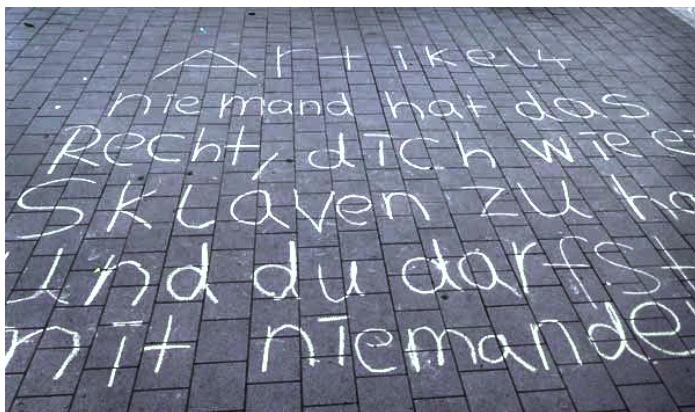 Artikel 4
niemand hat das
Recht, dich wie e
Sklaven zu ha
und du darfst
mit niemande